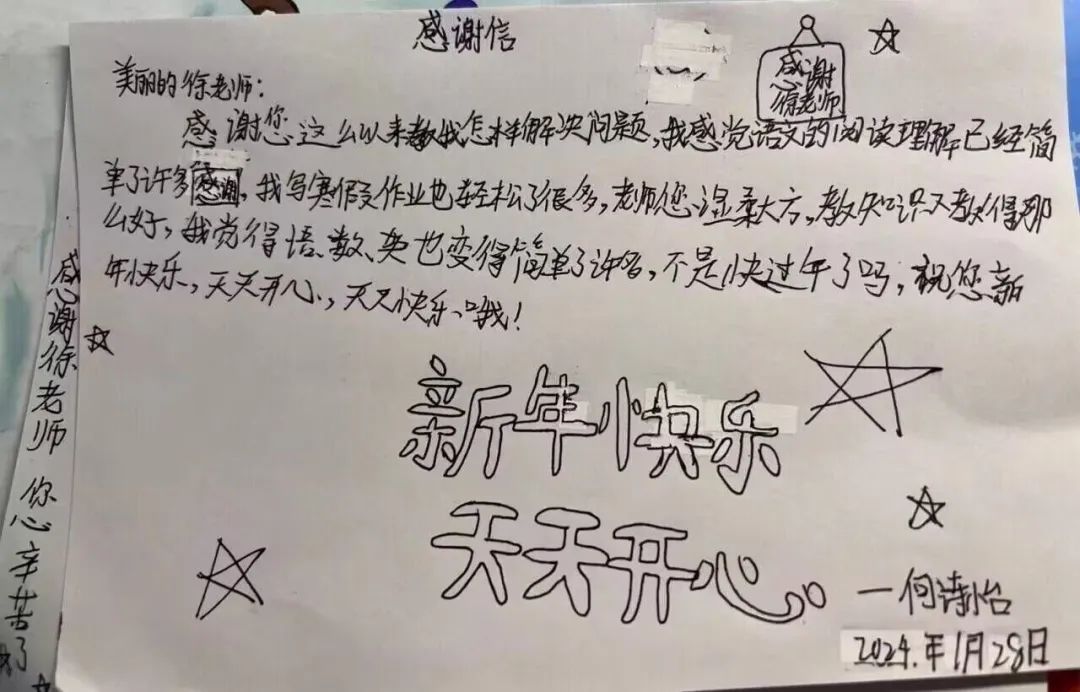 感谢信
感谢
徐老师
美丽的徐老师：
感谢您这么以来教我怎样解决问题，我感觉语文的阅读理解已经简
单了许多感谢，我写寒假作业也轻松了很多，老师您温柔大方，教知识又教得那
么好，我觉得语、数、英也变得简单了许多，不是快过年了吗，祝您新
年快乐，天天开心，天天快乐哦！
新年快乐
天天开心
—何诗怡
2024.年1月28日
感谢徐老师 您辛苦了